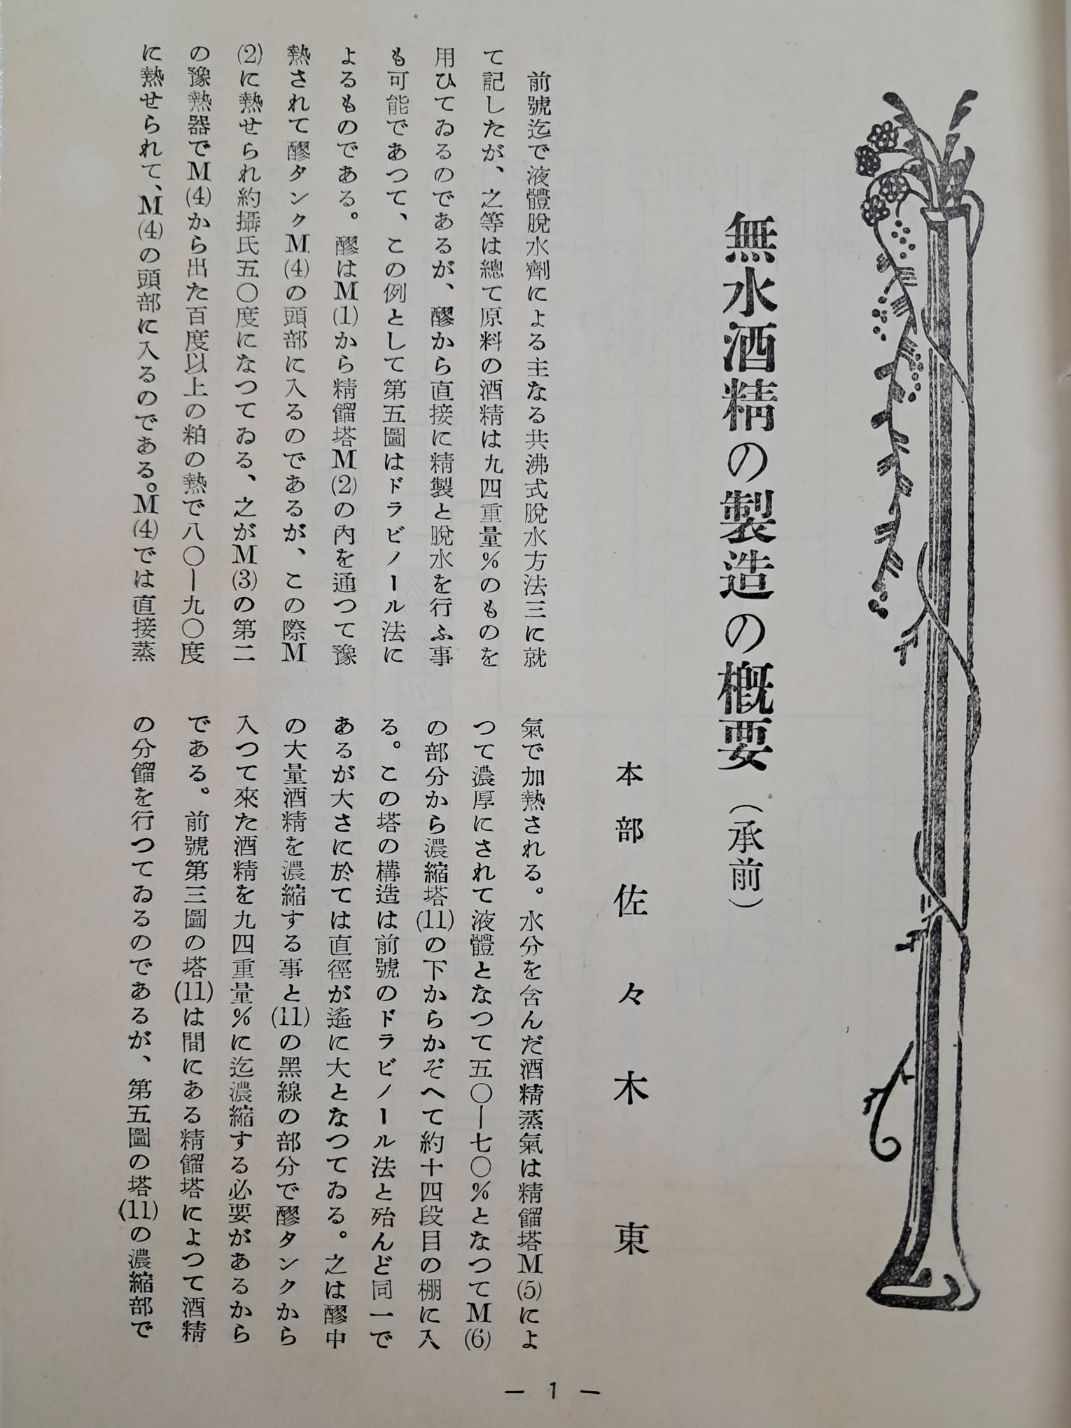 無水酒精の製造の槪要（承前）
本部　佐々木　東
前號迄で液體脫水劑による主なる共沸式脫水方法三に就
て記したが、之等は總て原料の酒精は九四重量％のものを
用ひてゐるのであるが、醪から直接に精製と脫水を行ふ事
も可能であつて、この例として第五圖はドラビノール法に
よるものである。醪はM(1)から精餾塔M(2)の內を通つて豫
熱されて醪タンクM(4)の頭部に入るのであるが、この際M
(2)に熱せられ約攝氏五〇度になつてゐる、之がM(3)の第二
の豫熱器でM(4)から出た百度以上の粕の熱で八〇ー九〇度
に熱せられて、M(4)の頭部に入るのである。M(4)では直接蒸
氣で加熱される。水分を含んだ酒精蒸氣は精餾塔M(5)によ
つて濃厚にされて液體となつて五〇ー七〇％となつてM(6)
の部分から濃縮塔(11)の下からかぞへて約十四段目の棚に入
る。この塔の構造は前號のドラビノール法と殆んど同一で
あるが大さに於ては直徑が遙に大となつてゐる。之は醪中
の大量酒精を濃縮する事と(11)の黑線の部分で醪タンクから
入つて來た酒精を九四重量％に迄濃縮する必要があるから
である。前號第三圖の塔(11)は間にある精餾塔によつて酒精
の分餾を行つてゐるのであるが、第五圖の塔(11)の濃縮部で
— 1 —